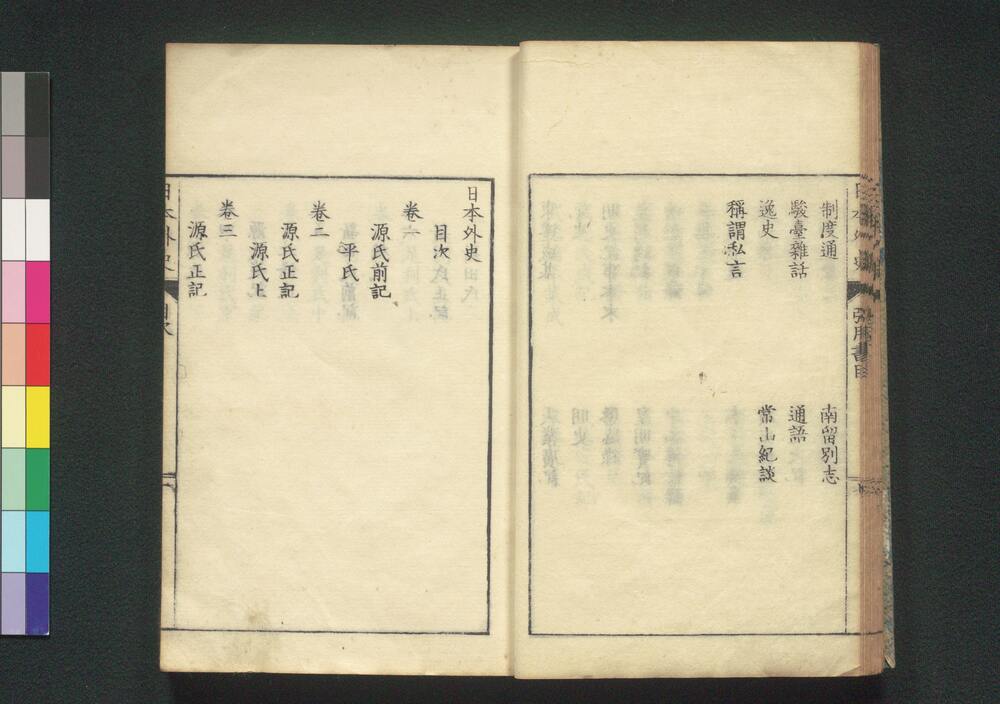 日本外史 引用書目
制度通 南留別志
駿臺雜話 通語
逸史 常山紀談
稱謂私言
日本外史
目次
卷一
源氏前記
平氏
卷二
源氏正記
源氏上
卷三
源氏正記
日本外史 目次